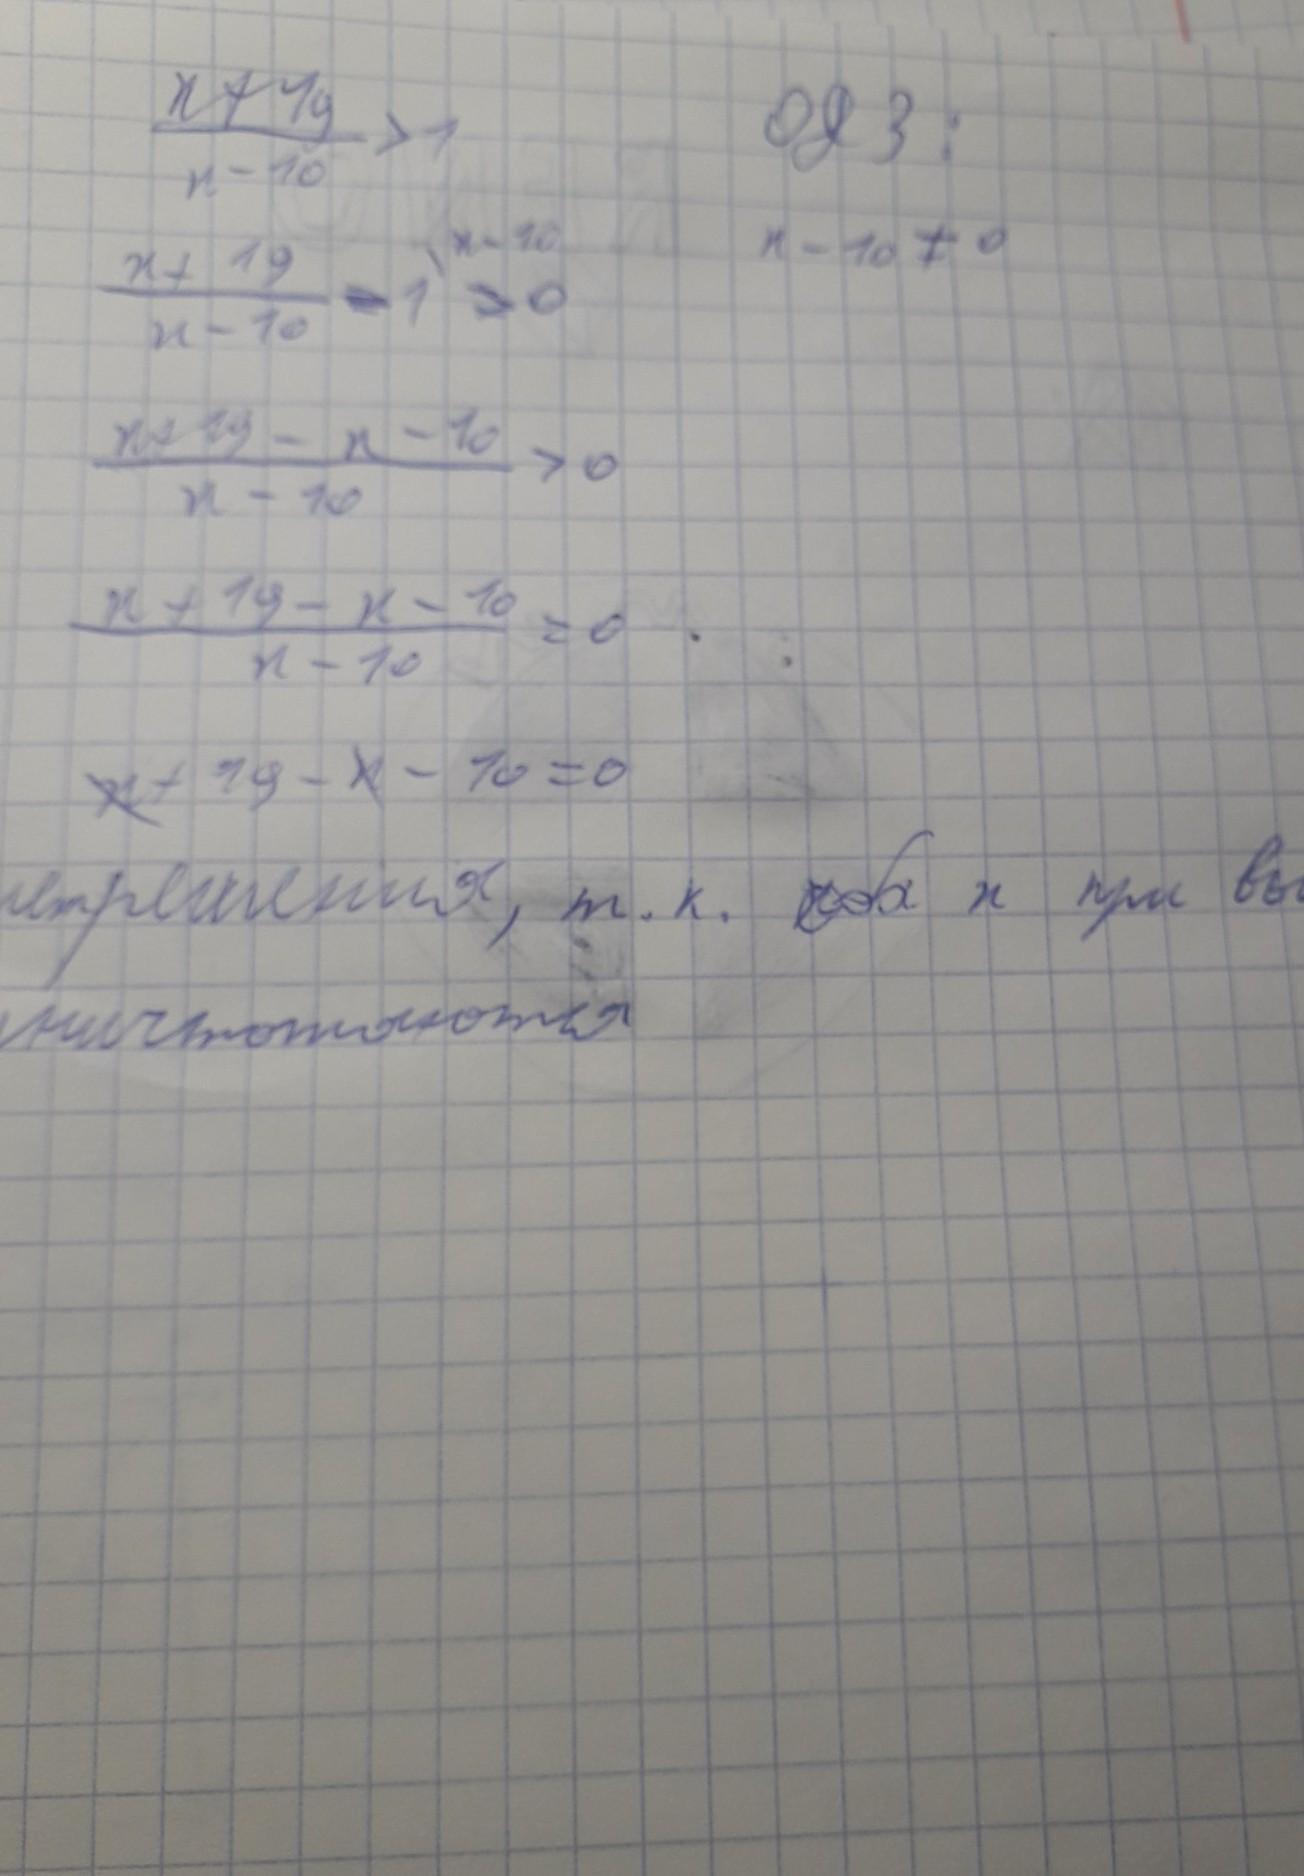 x + 19
―――― > 1
x - 10
ОДЗ:
x - 10 ≠ 0
x + 19
―――― - 1 \ x - 10 > 0
x - 10
x + 19 - x - 10
―――――――― > 0
x - 10
x + 19 - x - 10
―――――――― = 0
x - 10
x + 19 - x - 10 = 0
нет решения, т.к. оба x при вы
уничтожаются